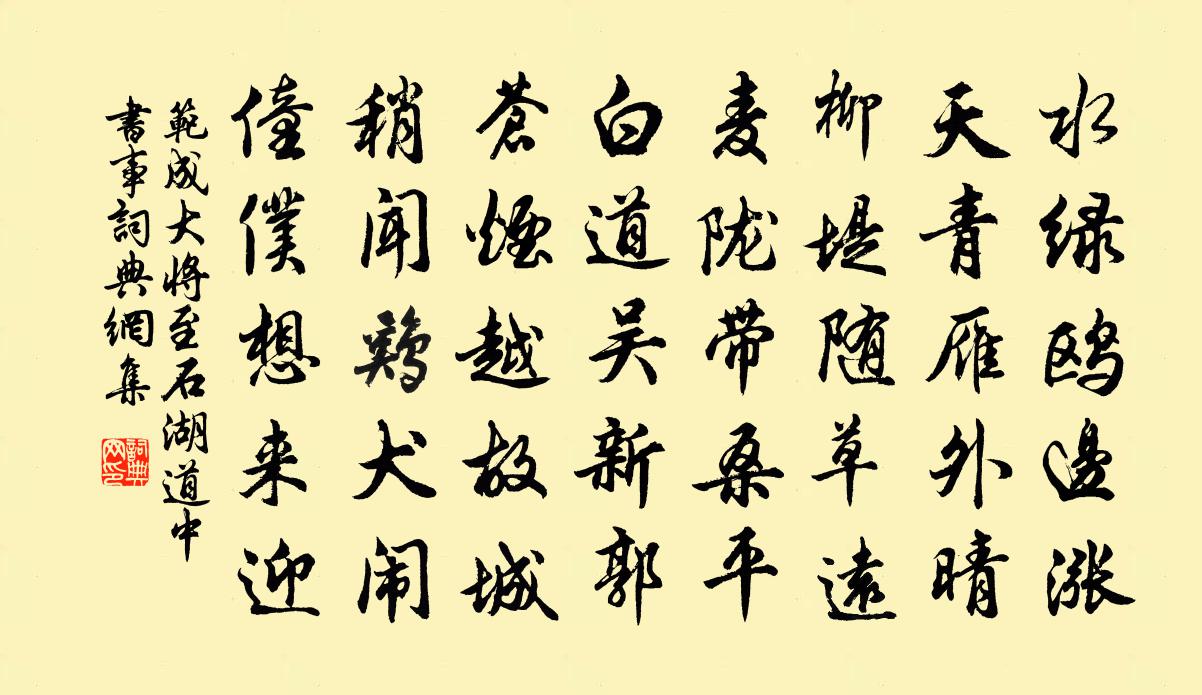 水绿鸥边涨
天青雁外晴
柳堤随草远
麦陇带桑平
白道吴新郭
苍烟越故城
稍闻鸡犬闹
僮仆想来迎
範成大将至石湖道中
書事詞典網集
詞典网印